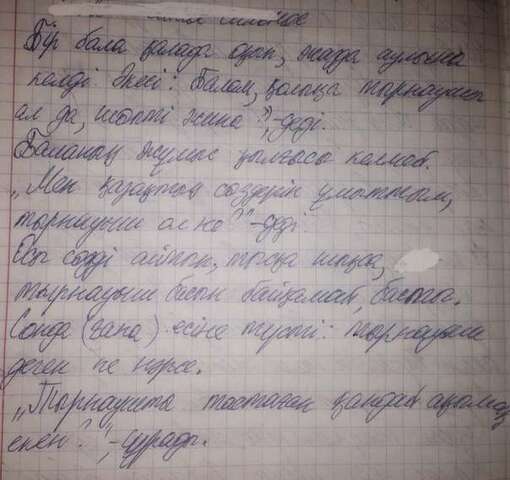 Бір бала қалада оқып, жазда ауылына
келді. Әкесі: Балам, қолыңа тырнауыш
ал да, шөпті жина?", - деді.
Баланың жұмыс қылғысы келмеб.
„Мен қазақтың сөздерін ұмыттым,
тырнауыш ол не?" - деді
Осы сөзді айтып, тысқа шықса,
тырнауыш басын байқамай, басты.
Сонда (ғана) есіне түсті: тырнауыш
деген не нәрсе.
„Тырнауышты тастаған қандай ақымақ
екен?", - сұрады.